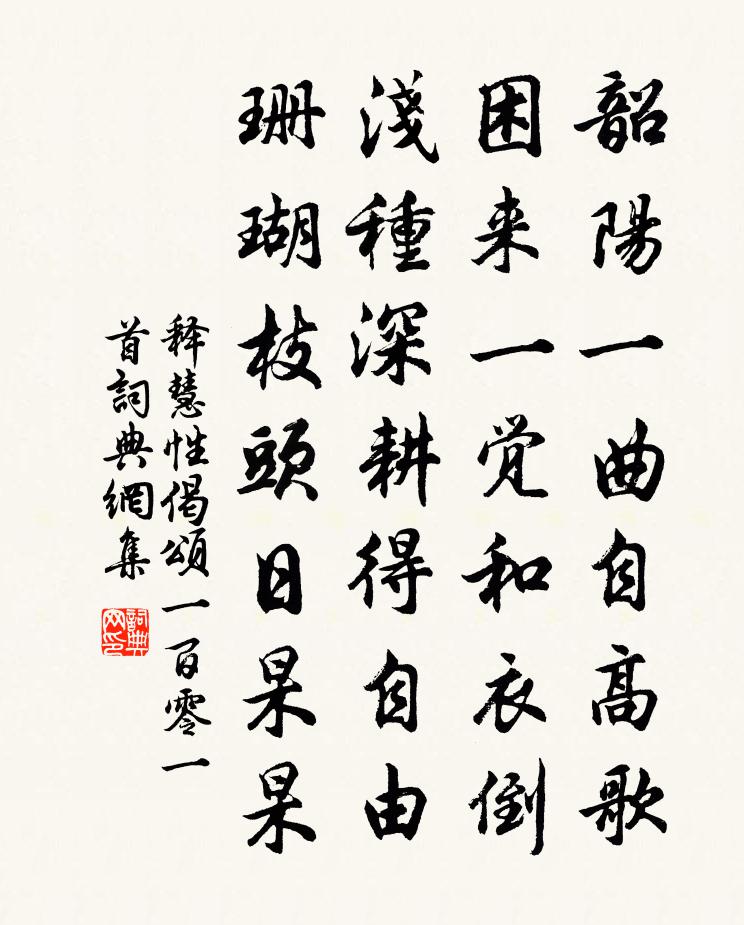 韶陽一曲自高歌
困来一觉和衣倒
淺種深耕得自由
珊瑚枝頭日杲杲
释慧性偈頌一百零一
首詞典網集
詞典
网印